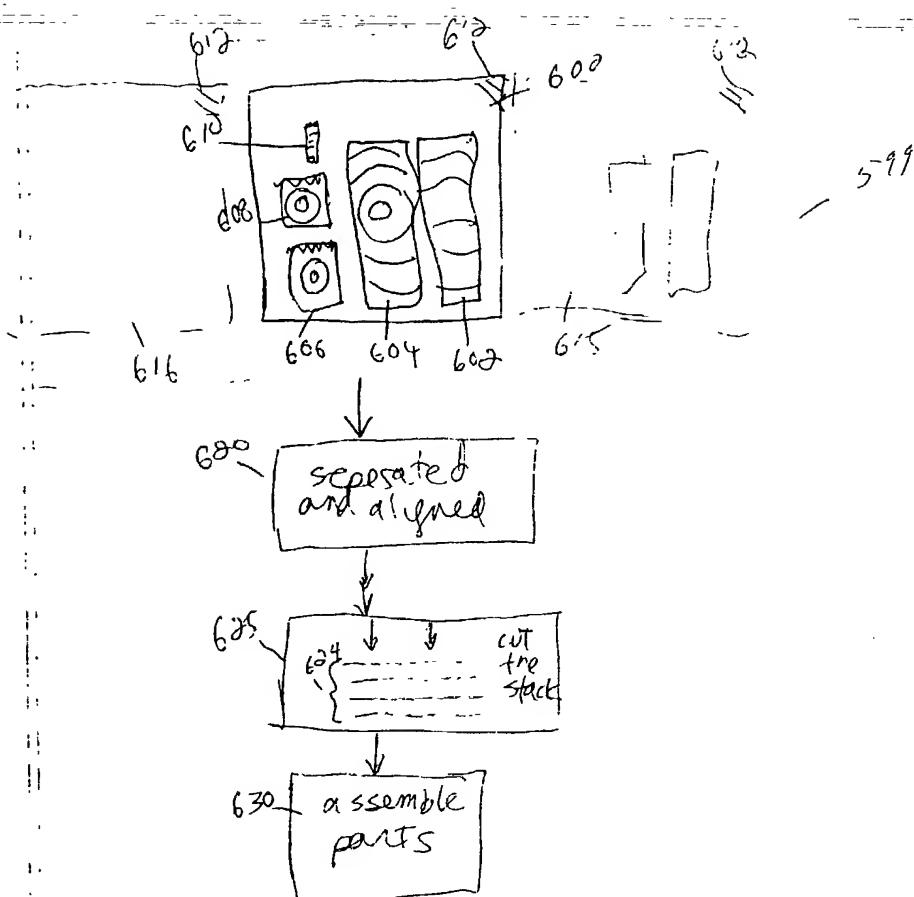 612
612
612
600
610
599
608
606
604
602
615
616
620
seperated
and aligned
625
624
cut
the
stack
630
assemble
parts